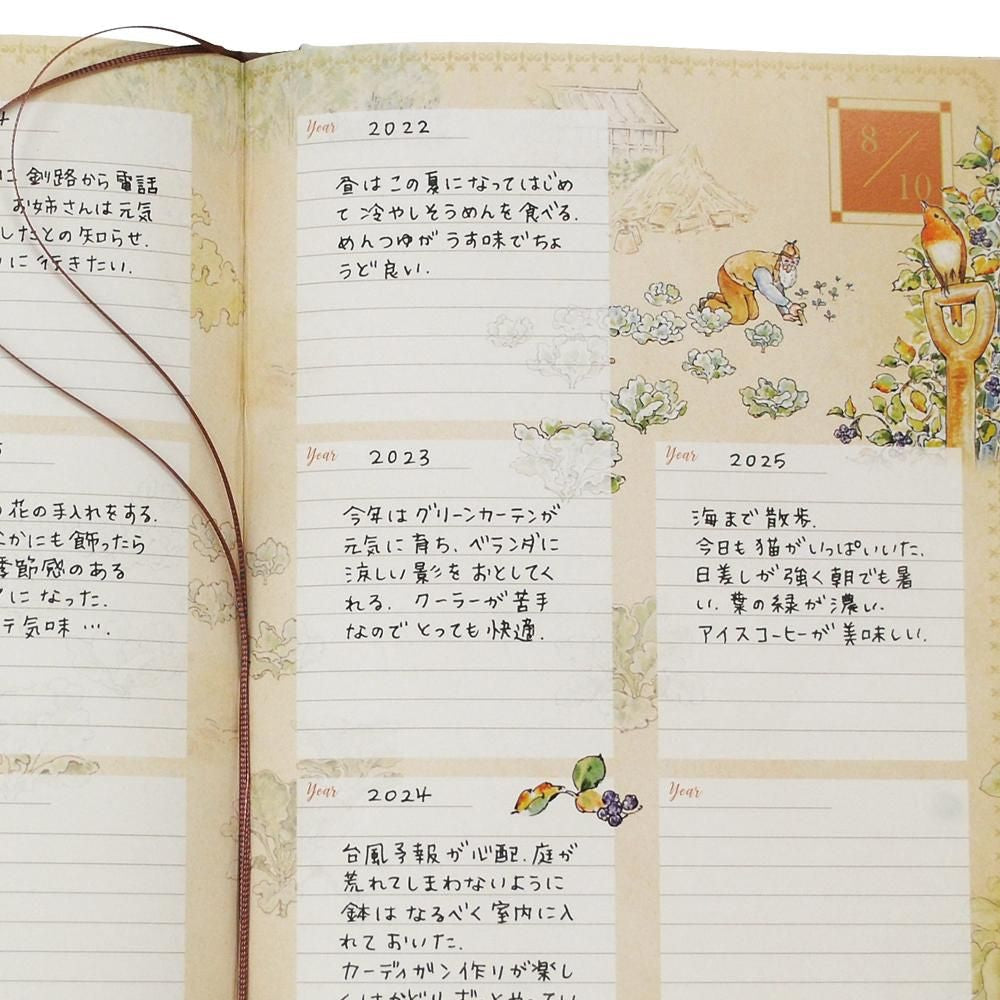 釧路から電話
お姉さんは元気
したとの知らせ.
に行きたい.
花の手入れをする.
かにも飾ったら
季節感のある
になった.
気味….
8/10
Year 2022
昼はこの夏になってはじめ
て冷やしそうめんを食べる.
めんつゆがうす味でちょ
うど良い.
Year 2023
今年はグリーンカーテンが
元気に育ち、ベランダに
涼しい影をおとしてく
れる. クーラーが苦手
なのでとっても快適.
Year 2024
台風予報が心配.庭が
荒れてしまわないように
鉢はなるべく室内に入
れておいた.
カーディガン作りが楽し
Year 2025
海まで散歩.
今日も猫がいっぱいいた.
日差しが強く朝でも暑
い. 葉の緑が濃い.
アイスコーヒーが美味しい.
Year